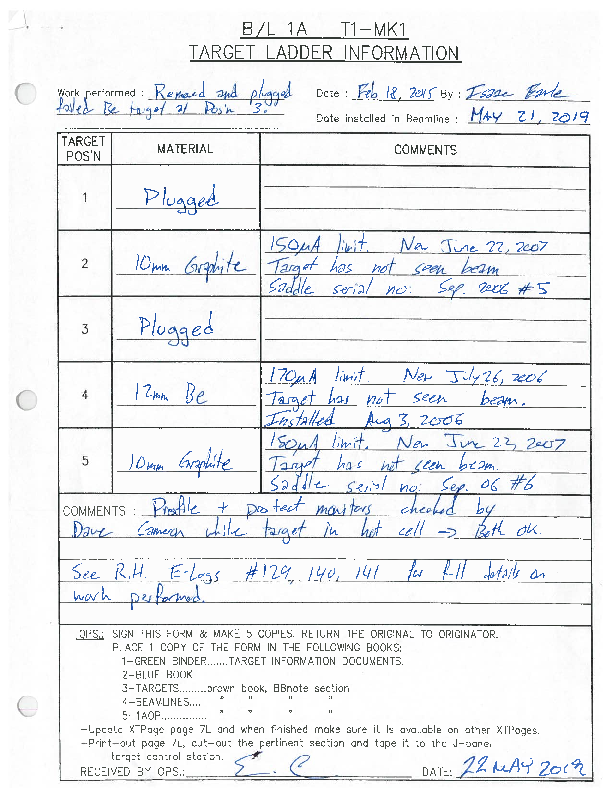 B/L 1A T1-MK1
TARGET LADDER INFORMATION
Work performed : Removed and plugged
failed Be target at Pos'n 3.
Date : Feb 18, 2015 By : Isaac Earle
Date installed in Beamline : MAY 21, 2019
TARGET POS'N MATERIAL COMMENTS
1 Plugged
2 10mm Graphite
150µA limit. New June 22, 2007
Target has not seen beam
Saddle serial no: Sep. 2006 #5
3 Plugged
4 12mm Be
170µA limit. New July 26, 2006
Target has not seen beam.
Installed Aug 3, 2006
5 10mm Graphite
150µA limit. New June 22, 2007
Target has not seen beam.
Saddle serial no: Sep. 06 #6
COMMENTS : Profile + protect monitors checked by
Dave Cameron while target in hot cell → Both OK.
See R.H. E-Logs #129, 140, 141 for full details on
work performed.
OPS.: SIGN THIS FORM & MAKE 5 COPIES. RETURN THE ORIGINAL TO ORIGINATOR.
PLACE 1 COPY OF THE FORM IN THE FOLLOWING BOOKS:
1-GREEN BINDER.......TARGET INFORMATION DOCUMENTS.
2-BLUE BOOK
3-TARGETS........brown book, BBnote section
4-BEAMLINES.... " " " "
5-1AOP.............. " " " "
-Update XTPage page 7L and when finished make sure it is available on other XTPages.
-Print-out page 7L, cut-out the pertinent section and tape it to the J-panel
target control station.
RECEIVED BY OPS.: E. C DATE: 22 MAY 2019